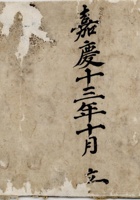 嘉慶十三年十月 立